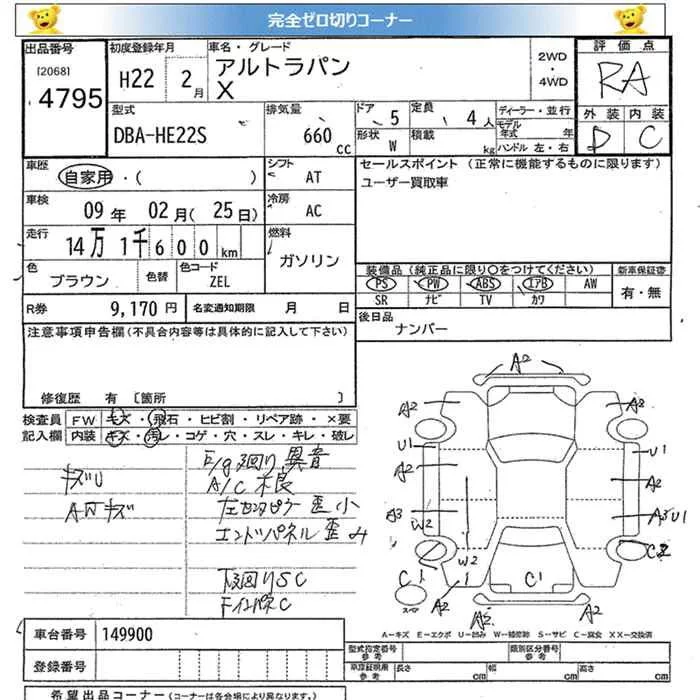 完全ゼロ切りコーナー
出品番号
[2068]
4795
初度登録年月
H22 2月
車名・グレード
アルトラパン
X
2WD
・
4WD
評価点
RA
外装 内装
D C
型式
DBA-HE22S
排気量
660 cc
ドア 5
定員 4人
形状 W
積載 kg
ディーラー・並行
モデル年式 年
ハンドル 左・右
車歴
自家用・( )
シフト AT
セールスポイント (正常に機能するものに限ります)
ユーザー買取車
車検
09年 02月(25日)
冷房 AC
走行
14万1千600km
燃料
ガソリン
色
ブラウン
色替
色コード
ZEL
装備品 (純正品に限り〇をつけてください)
新車保証書
PS PW ABS エアB AW
有・無
SR ナビ TV カワ
R券 9,170円
名変通知期限 月 日
後日品
ナンバー
注意事項申告欄(不具合内容等は具体的に記入して下さい)
修復歴 有 [箇所 ]
検査員
記入欄
FW キズ・飛石・ヒビ割・リペア跡・×要
内装 キズ・汚レ・コゲ・穴・スレ・キレ・破レ
キズU
AWキズ
E/g廻り異音
A/C不良
左センタピラー歪小
エンドパネル歪み
下廻りSC
FインパネC
A2
A2 A2
U1 U1
A2 A2
A3 W2 A3U1
W2 C2
C1 1 C1
スペア
A2 A2 A2
A-キズ E-エクボ U-凹み W-補修跡 S-サビ C-腐食 XX-交換済
車台番号 149900
登録番号
型式指定番号
参考
類別区分番号
参考
車庫証明用
参考
長さ cm
幅 cm
高さ cm
希望出品コーナー(コーナーは各会場により異なります。)